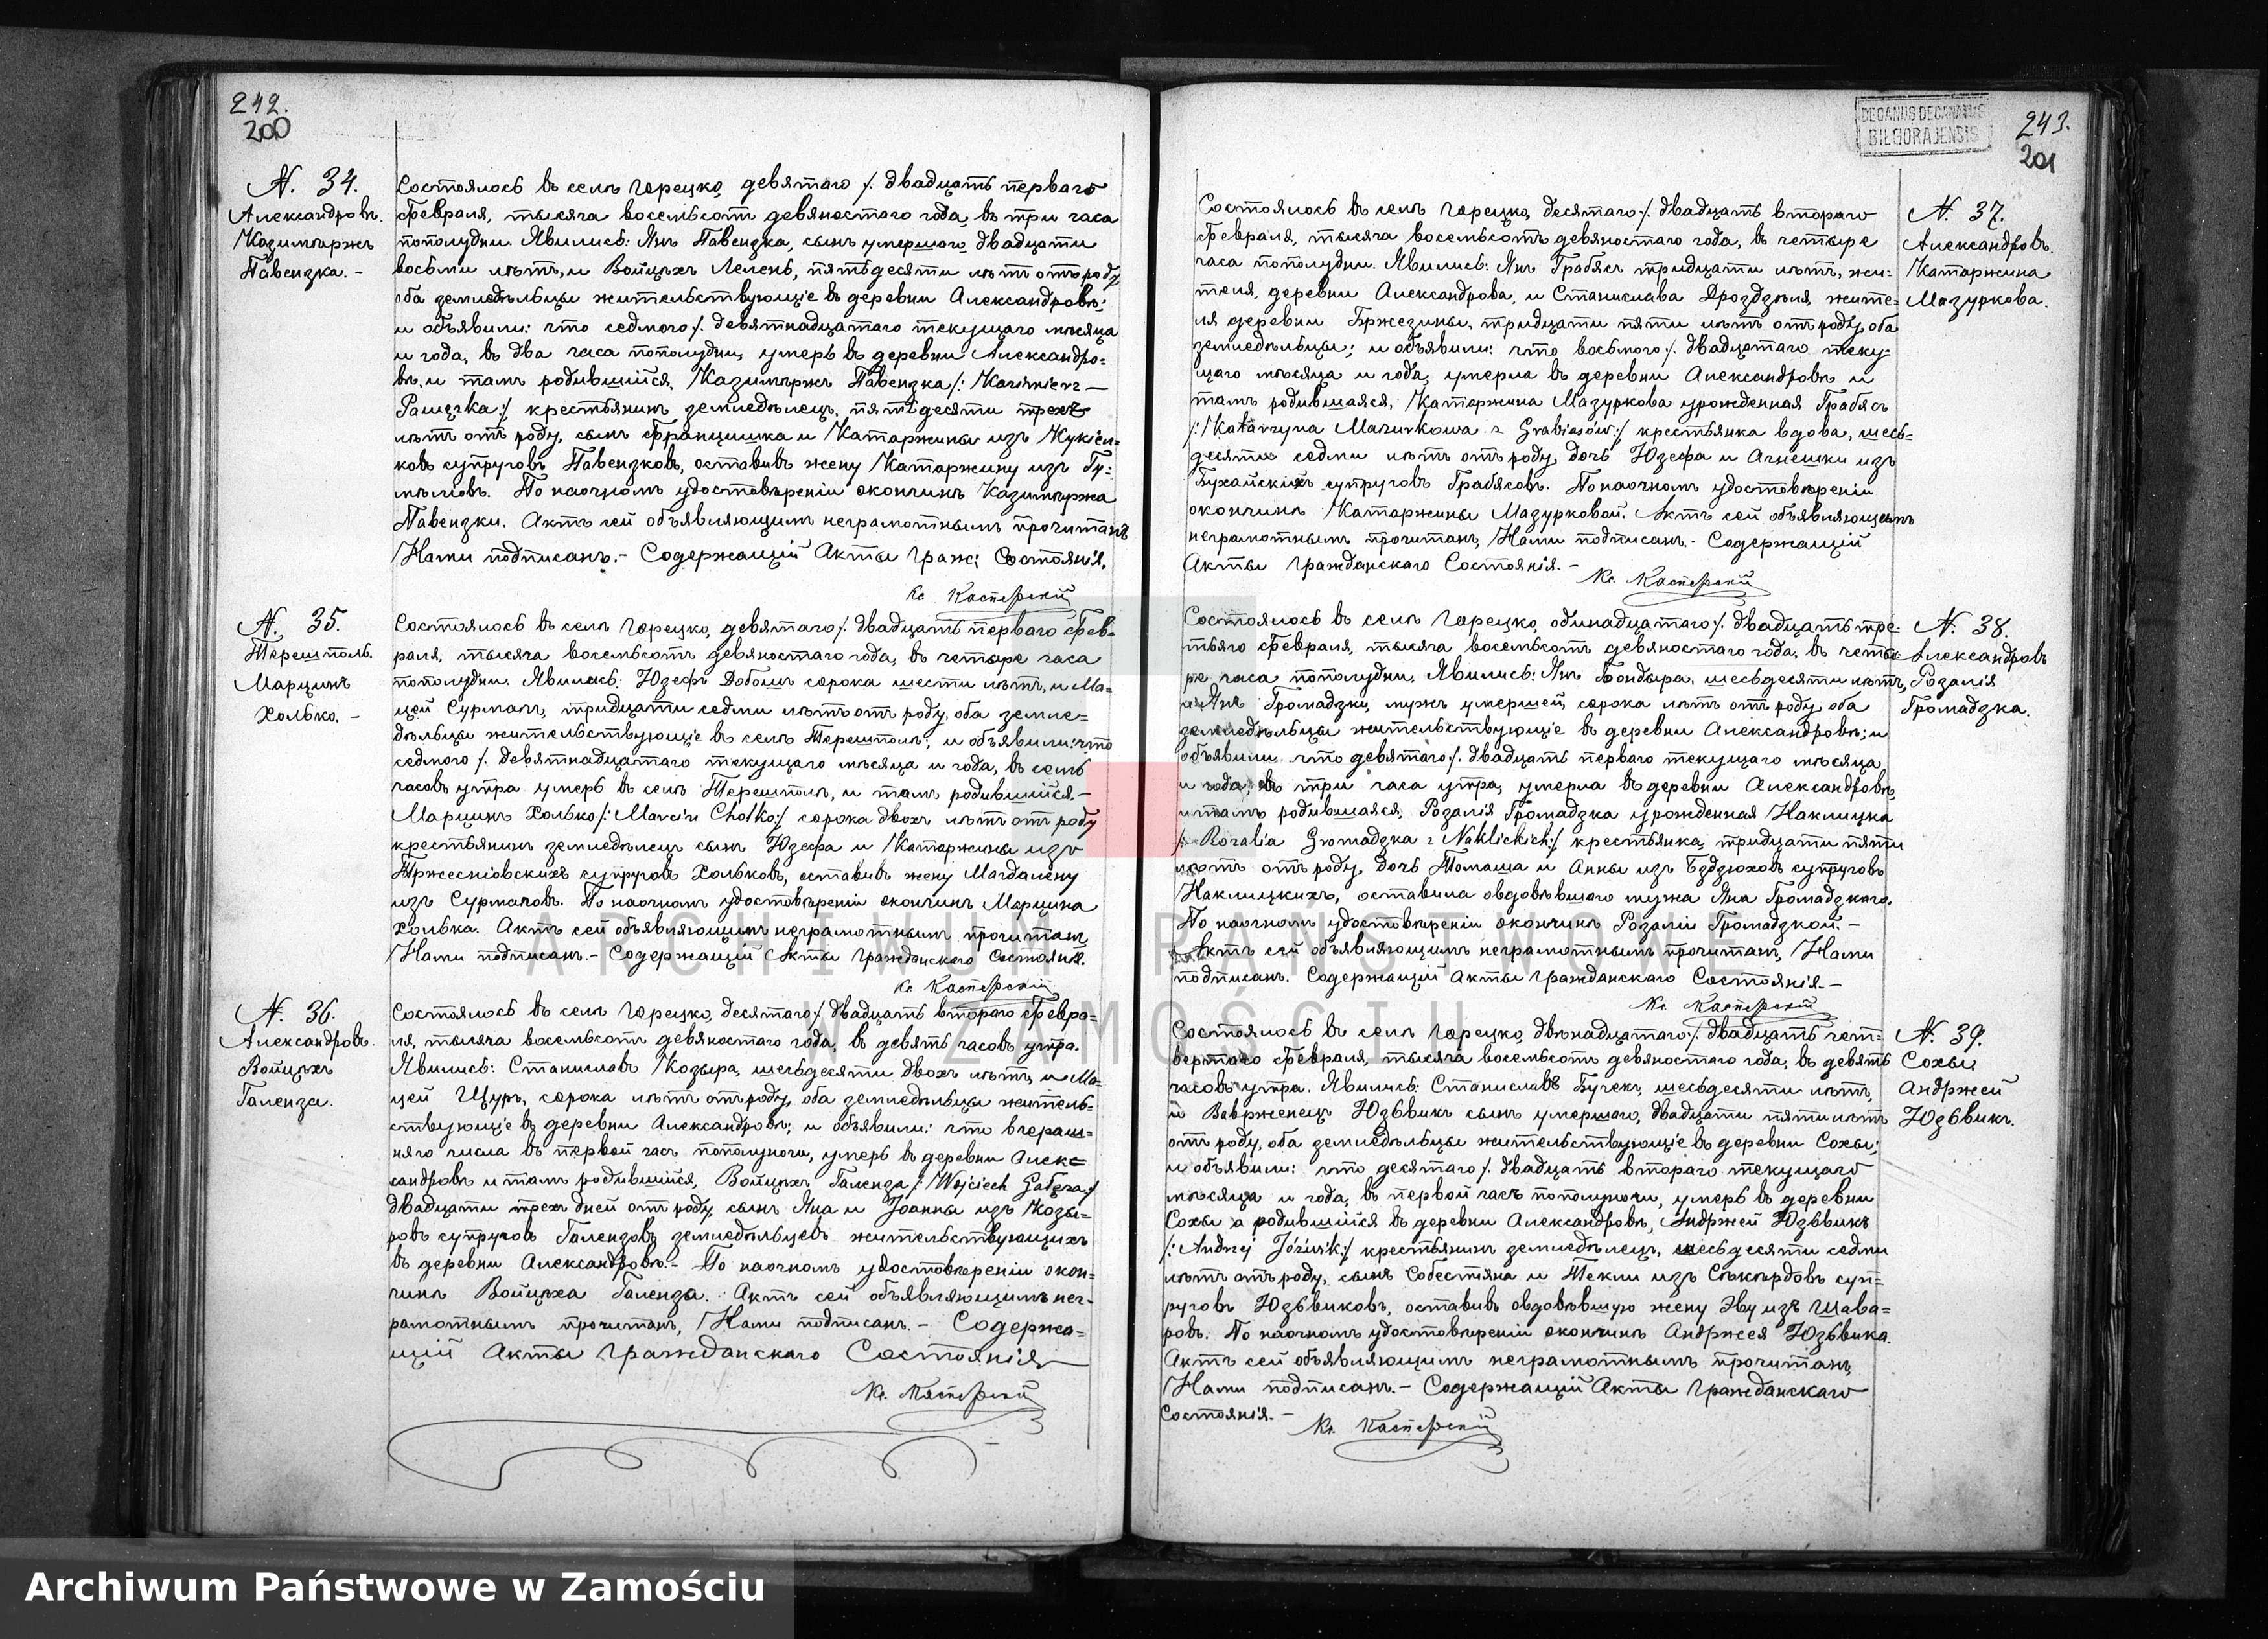 242.
200
N. 34.
Александровъ.
Казимѣржъ
Павензка. –
Состоялось въ селѣ Горецко, девятаго /. двадцать перваго
Февраля, тысяча восемьсотъ девяностаго года, въ три часа
пополудни. Явились: Янъ Павензка, сынъ умершаго, двадцати
восьми лѣтъ, и Войцѣхъ Лелень, пятьдесяти лѣтъ отъ роду
оба земледѣльцы жительствующіе въ деревни Александровѣ;
и объявили: что седмого /. девятнадцатаго текущаго мѣсяца
и года, въ два часа пополудни, умеръ въ деревни Александро=
вѣ, и тамъ родившійся, Казимѣржъ Павензка /: Kazimierz —
Pawęzka :/ крестьянинъ земледѣлецъ, пятьдесяти трехъ
лѣтъ отъ роду, сынъ Францишка и Катаржины изъ Кукел=
ковъ супруговъ Павензковъ, оставивъ жену Катаржину изъ Гу=
мѣловъ. По наочномъ удостовѣреніи окончинѣ Казимѣржа
Павензки. Актъ сей объявляющимъ неграмотнымъ прочитанъ
Нами подписанъ. – Содержащій Акты Граж: Состоянія.
Кс Касперскій
N. 35.
Терешполь.
Марцинъ
Холько. –
Состоялось въ селѣ Горецко, девятаго /. двадцать перваго Фев=
раля, тысяча восемьсотъ девяностаго года, въ четыре часа
пополудни. Явились: Юзефъ Добошъ сорока шести лѣтъ, и Ма=
цей Сурмачъ, тридцати седми лѣтъ отъ роду, оба земле=
дѣльцы жительствующіе въ селѣ Терешполь; и объявили: что
седмого /. девятнадцатаго текущаго мѣсяца и года, въ семь
часовъ утра умеръ въ селѣ Терешполь, и тамъ родившійся –
Марцинъ Холько /: Marcin Cholko :/ сорока двохъ лѣтъ отъ роду
крестьянинъ земледѣлецъ сынъ Юзефа и Катаржины изъ
Тржесніовскихъ супруговъ Хольковъ, оставивъ жену Магдалену
изъ Сурмачовъ. По наочномъ удостовѣреніи окончинѣ Марцина
Холька. Актъ сей объявляющимъ неграмотнымъ прочитанъ
Нами подписанъ. – Содержащій Акты Гражданскаго Состоянія.
Кс Касперскій
N. 36.
Александровъ.
Войцѣхъ
Галенза.
Состоялось въ селѣ Горецко, десятаго /. двадцать втораго Февра=
ля, тысяча восемьсотъ девяностаго года, въ девять часовъ утра.
Явились: Станиславъ Козыра, шесьдесяти двохъ лѣтъ, и Ма=
цей Щуръ, сорока лѣтъ отъ роду, оба земледѣльцы житель=
ствующіе въ деревни Александровѣ; и объявили: что вчераш=
няго числа въ первой часъ пополуночи, умеръ въ деревни Алек=
сандровѣ и тамъ родившійся, Войцѣхъ Галенза /: Wojciech Gałęza :/
двадцати трехъ дней отъ роду, сынъ Яна и Іоанны изъ Козы=
ровъ супруговъ Галензовъ земледѣльцевъ жительствующихъ
въ деревни Александровѣ. – По наочномъ удостовѣреніи окон=
чинѣ Войцѣха Галенза. Актъ сей объявляющимъ нег=
рамотнымъ прочитанъ, Нами подписанъ. – Содержа=
щій Акты Гражданскаго Состоянія
Кс. Касперскій
DECANUS DECANATUS
BIŁGORAJENSIS
243.
201
N. 37.
Александровъ.
Катаржина
Мазуркова.
Состоялось въ селѣ Горецко, десятаго /. двадцать втораго
Февраля, тысяча восемьсотъ девяностаго года, въ четыре
часа пополудни. Явились: Янъ Грабясъ тридцати лѣтъ, жи=
теля, деревни Александрова, и Станислава Дроздзѣля, жите=
ля деревни Бржезины, тридцати пяти лѣтъ отъ роду оба
земледѣльцы; и объявили: что восьмого /. двадцатаго теку=
щаго мѣсяца и года, умерла въ деревни Александровѣ и
тамъ родившаяся, Катаржина Мазуркова урожденная Грабясъ
/: Katarzyna Mazurkowa z Grabiasów :/ крестьянка вдова, шесь=
десяти седми лѣтъ отъ роду, дочь Юзефа и Агнешки изъ
Бухайскихъ супруговъ Грабясовъ. По наочномъ удостовѣреніи
окончинѣ Катаржины Мазурковой. Актъ сей объявляющимъ
неграмотнымъ прочитанъ, Нами подписанъ. – Содержащій
Акты Гражданскаго Состоянія. –
Кс. Касперскій
N. 38.
Александровъ
Розалія
Громадзка.
Состоялось въ селѣ Горецко, одинадцатаго /. двадцать тре=
тьяго Февраля, тысяча восемьсотъ девяностаго года, въ четы=
ре часа пополудни, Явились: Янъ Бондыра, шесьдесяти лѣтъ,
и Янъ Громадзки, мужъ умершей, сорока лѣтъ отъ роду оба
земледѣльцы жительствующіе въ деревни Александровѣ; и
объявили что девятаго /. двадцать перваго текущаго мѣсяца
и года, въ три часа утра, умерла въ деревни Александровѣ
и тамъ родившаяся, Розалія Громадзка урожденная Наклицка
/: Rozalia Gromadzka z Naklickich :/ крестьянка, тридцати пяти
лѣтъ отъ роду, дочь Томаша и Анны изъ Бздзюховъ супруговъ
Наклицкихъ, оставила овдовѣвшаго мужа Яна Громадзкаго.
По наочномъ удостовѣреніи окончинѣ Розаліи Громадзкой. –
Актъ сей объявляющимъ неграмотнымъ прочитанъ, Нами
подписанъ. Содержащій Акты Гражданскаго Состоянія. –
Кс. Касперскій
N. 39.
Сохы,
Андржей
Юзьвикъ.
Состоялось въ селѣ Горецко, двѣнадцатаго /. двадцать чет=
вертаго Февраля, тысяча восемьсотъ девяностаго года, въ девять
часовъ утра. Явились: Станиславъ Бучекъ, шесьдесяти лѣтъ,
и Вавржинецъ Юзьвикъ сынъ умершаго, двадцати пяти лѣтъ
отъ роду, оба земледѣльцы жительствующіе въ деревни Сохы;
и объявили: что десятаго /. двадцать втораго текущаго
мѣсяца и года, въ первой часъ пополуночи, умеръ въ деревни
Сохы а родившійся въ деревни Александровѣ, Андржей Юзьвикъ
/: Andrzej Józiwik :/ крестьянинъ земледѣлецъ, шесьдесяти седми
лѣтъ отъ роду, сынъ Собестяна и Текли изъ Сѣкѣрдовъ суп=
руговъ Юзьвиковъ, оставивъ овдовѣвшую жену Эву изъ Шава=
ровъ. По наочномъ удостовѣреніи окончинѣ Андржея Юзьвика.
Актъ сей объявляющимъ неграмотнымъ прочитанъ,
Нами подписанъ. – Содержащій Акты Гражданскаго
Состоянія. –
Кс. Касперскій
ARCHIWUM PAŃSTWOWE
W ZAMOŚCIU
Archiwum Państwowe w Zamościu